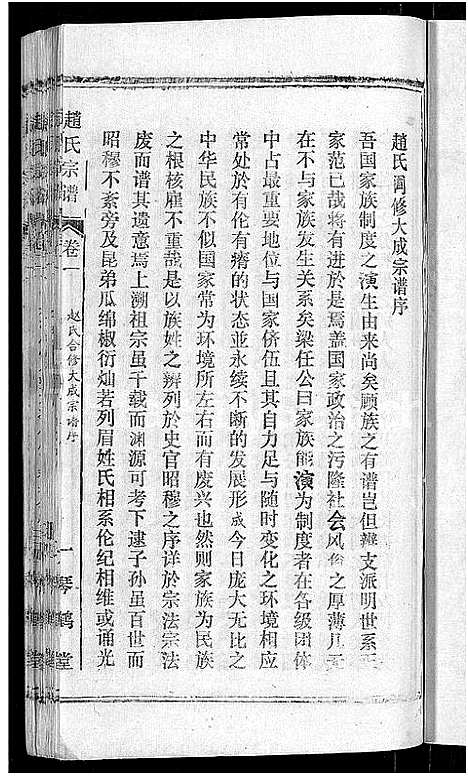 趙氏闔修大成宗谱序
吾国家族制度之演生由来尚矣顾族之有谱岂但辨支派明世系
家范已哉将有进於是焉盖国家政治之污隆社会风俗之厚薄
在不与家族发生关系矣梁任公曰家族能演为制度者在各级团体
中占最重要地位与国家侪伍且其自力足与随时变化之环境相应
常处於有伦有瘠的状态並永续不断的发展形成今日庞大无比之
中华民族不似国家常为环境所左右而有废兴也然则家族为民族
之根核雇不重哉是以族姓之辨列於史官昭穆之序详於宗法宗法
废而谱其遗意焉上溯祖宗虽千载而渊源可考下逮子孙虽百世而
昭穆不紊旁及昆弟瓜绵椒衍灿若列眉姓氏相系伦纪相维或诵光
趙氏宗谱
卷一
赵氏合修大成宗谱序
一
琴鹤堂